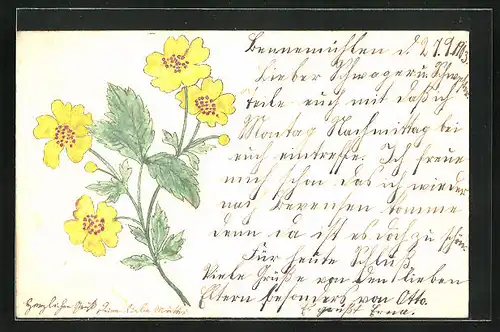 Bennemühlen d 27.9.1903
Lieber Schwager u. Schwester
teile euch mit daß ich
Montag Nachmittag bei
euch eintreffe. Ich freue
mich schon das ich wieder
nach Bevensen komme
denn da ist es doch zu schön.
Für heute Schluß
Viele Grüße von den lieben
Eltern besonders von Otto.
Es grüßt Erna.
Herzlichen Gruß